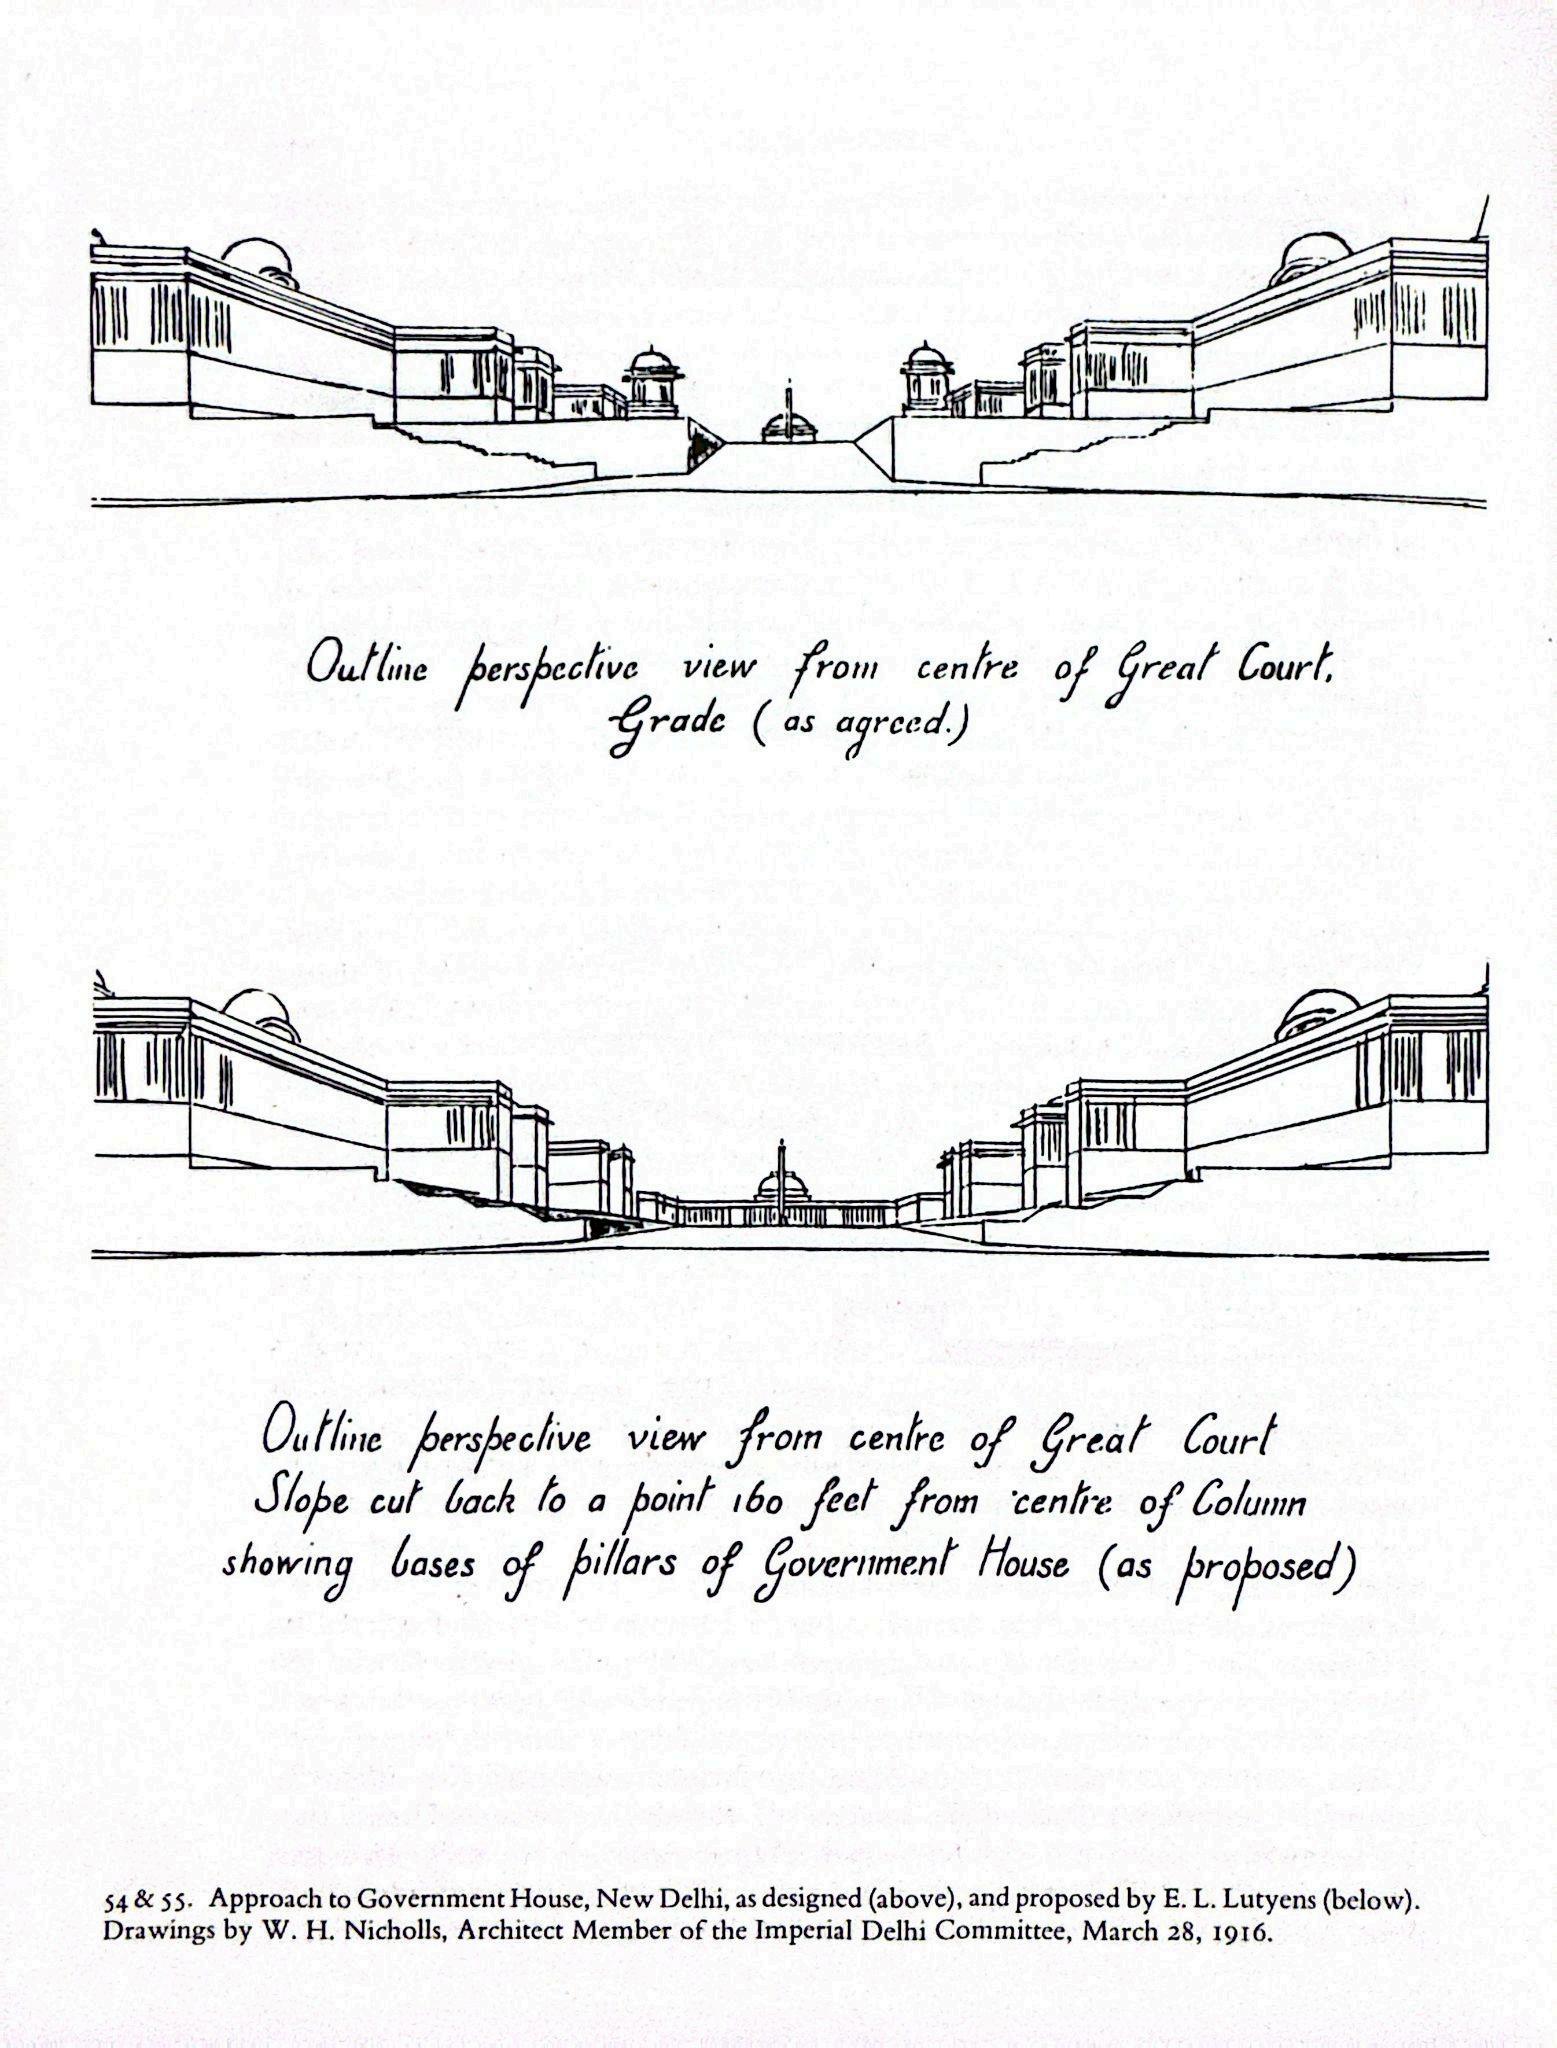 Outline perspective view from centre of Great Court.
Grade (as agreed.)
Outline perspective view from centre of Great Court
Slope cut back to a point 160 feet from centre of Column
showing bases of pillars of Government House (as proposed)
54 & 55. Approach to Government House, New Delhi, as designed (above), and proposed by E. L. Lutyens (below).
Drawings by W. H. Nicholls, Architect Member of the Imperial Delhi Committee, March 28, 1916.